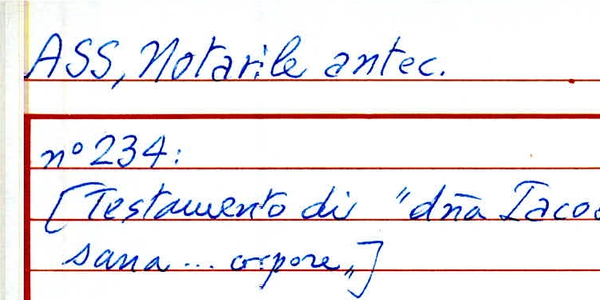 ASS, Notarile antec.
nº 234:
[Testamento di "dña Iaco
sana... corpore"]